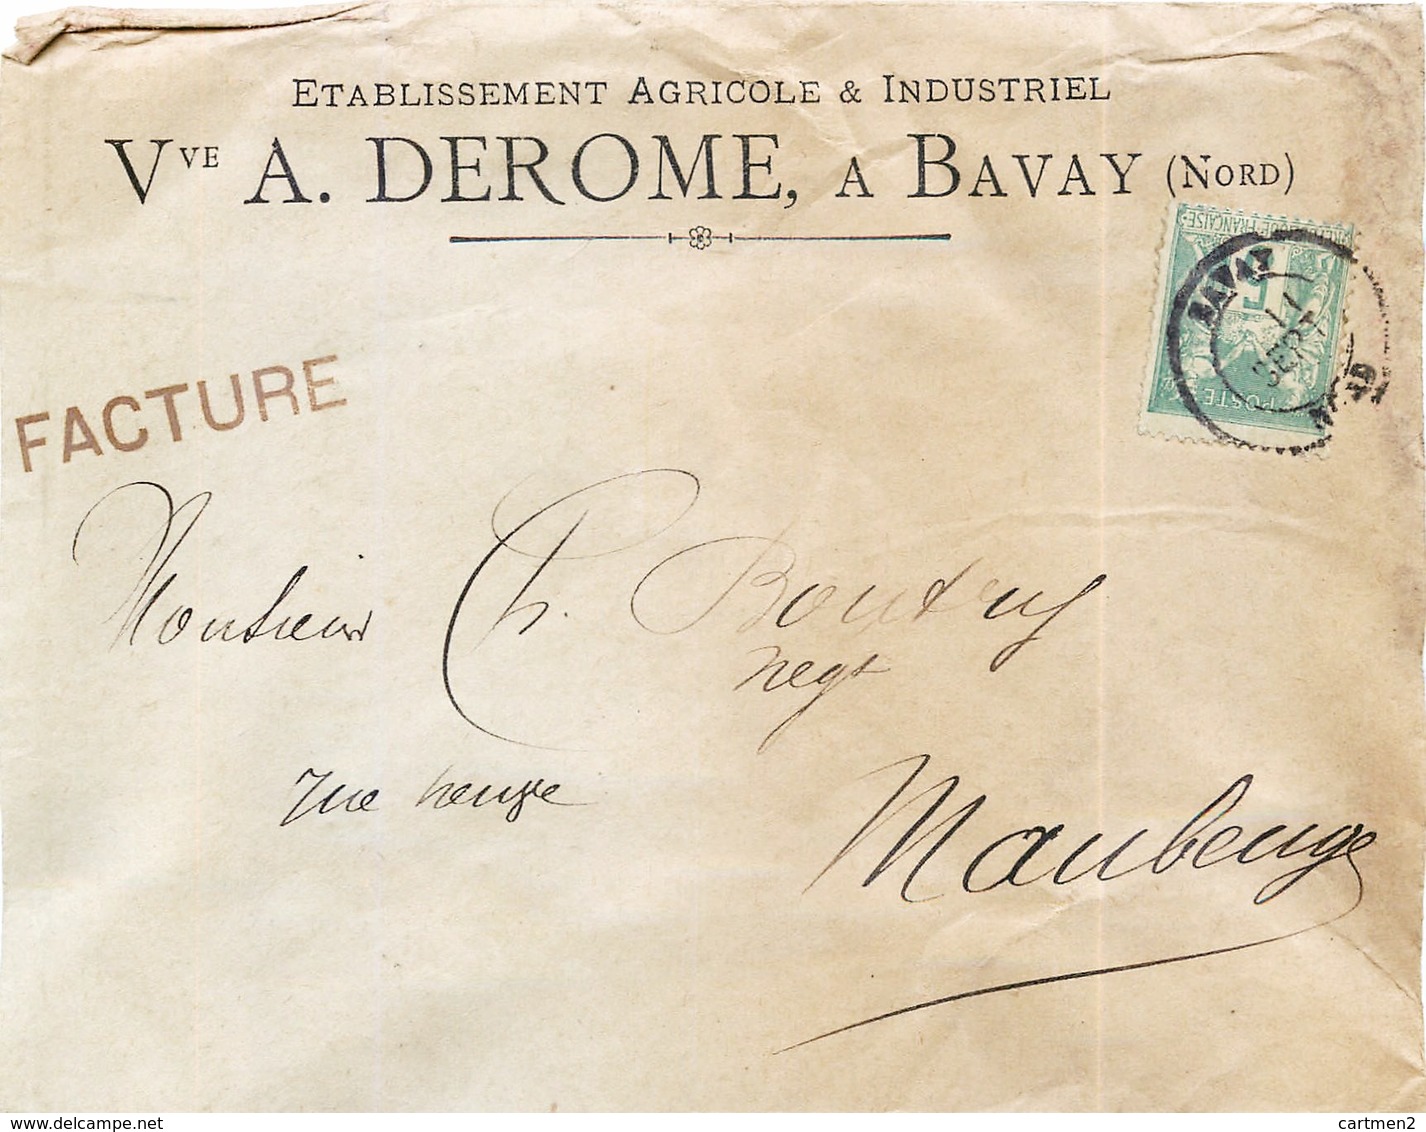 ETABLISSEMENT AGRICOLE & INDUSTRIEL
Vve A. DEROME, A BAVAY (NORD)
RÉPUBLIQUE FRANÇAISE
5
POSTE
BAVAY
11
SEPT
NORD
FACTURE
Monsieur Ch. Boutry
negt
rue neuve
Maubeuge
cartmen2